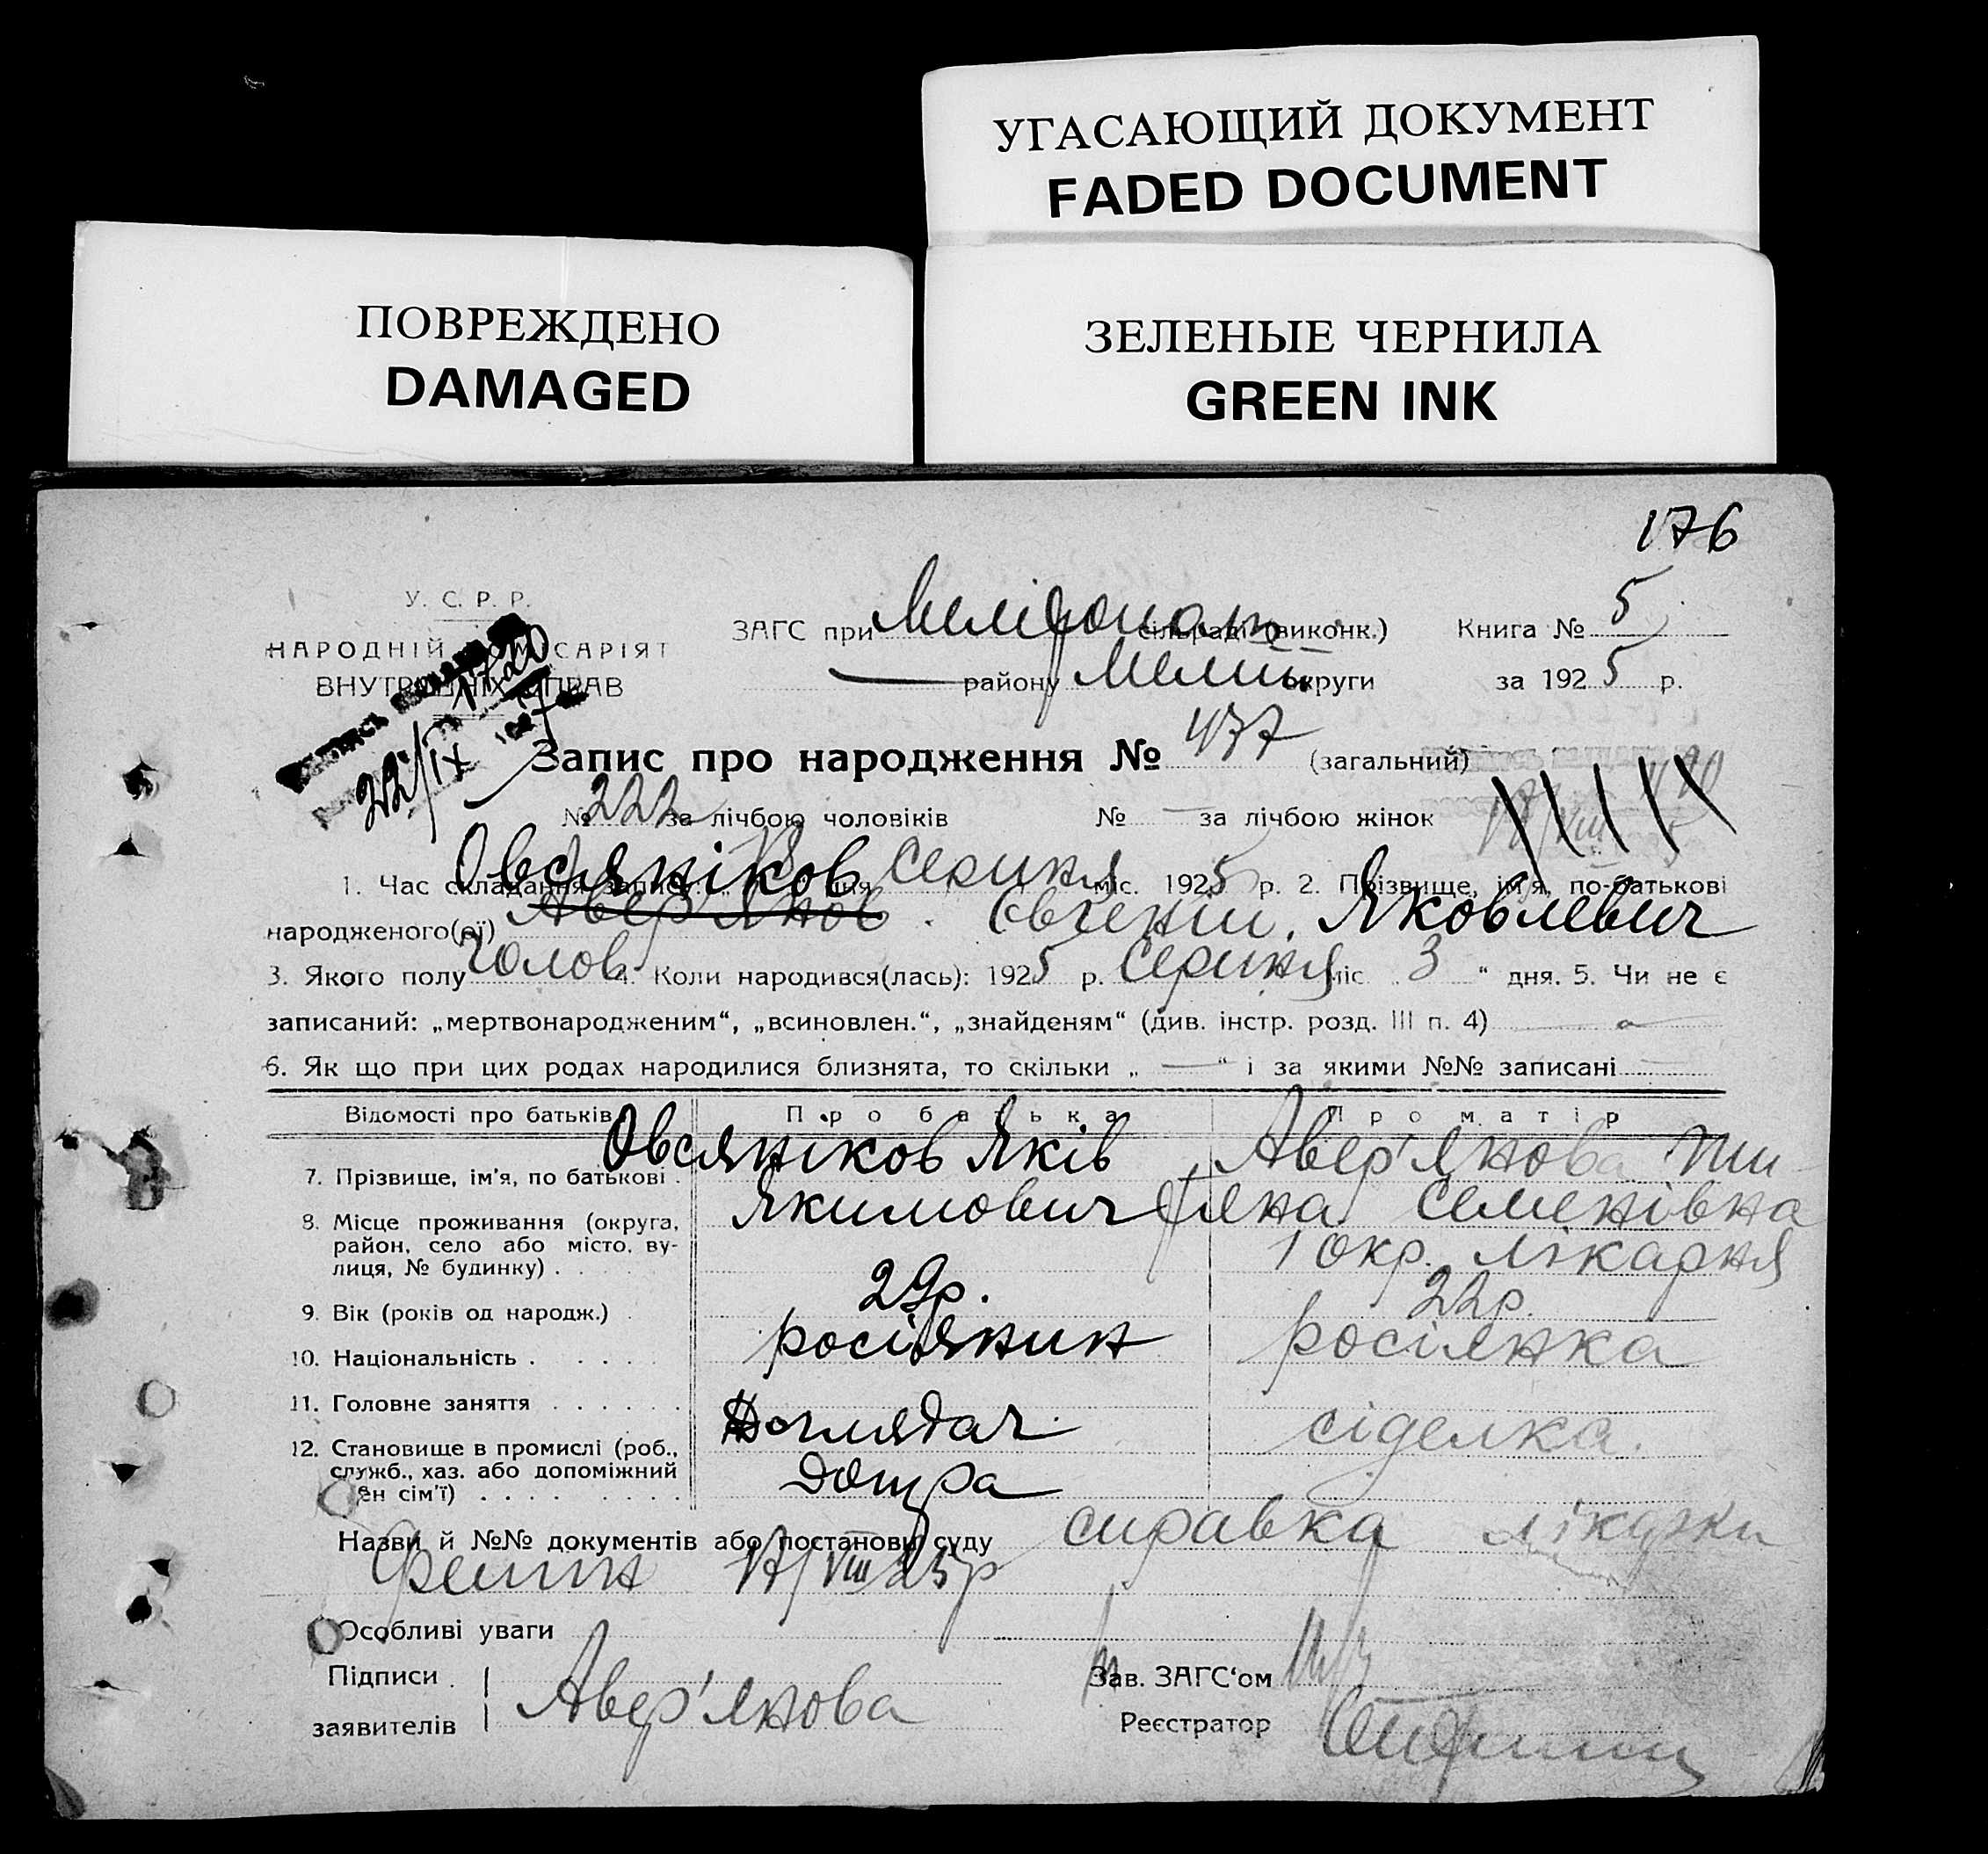 УГАСАЮЩИЙ ДОКУМЕНТ
FADED DOCUMENT
ПОВРЕЖДЕНО
DAMAGED
ЗЕЛЕНЫЕ ЧЕРНИЛА
GREEN INK
176
У. С. Р. Р.
НАРОДНІЙ КОМІСАРІЯТ
ВНУТРІШНІХ СПРАВ
ЗАГС при сільраді (виконк.) Книга № 5
— району Мелит округи за 1925 р.
22/IX
Запис про народження № 437 (загальний)
№ 222 за лічбою чоловіків № — за лічбою жінок
Овсяніков
1. Час складання запису: дня серпня міс. 1925 р. 2. Прізвище, ім'я, по-батькові
народженого(ої) Авер'янов. Євгеній. Яковлевич
3. Якого полу чолов 4. Коли народився(лась): 1925 р. серпня міс. 3 " дня. 5. Чи не є
записаний: „мертвонародженим“, „всиновлен.“, „знайденям“ (див. інстр. розд. III п. 4)
6. Як що при цих родах народилися близнята, то скільки „ — “ і за якими №№ записані
Відомості про батьків Про батька Про матір
7. Прізвище, ім'я, по батькові . Овсяніков Яків Авер'янова
Якимович Семенівна
8. Місце проживання (округа, район, село або місто, вулиця, № будинку) . . 1 окр. лікарня
9. Вік (років од народж.) . 29р. 22р.
10. Національність . . . . . росіянин росіянка
11. Головне заняття . . . . . . Доглядач сіделка.
12. Становище в промислі (роб., служб., хаз. або допоміжний член сім'ї) . . . . . . . .
Назви й №№ документів або постанови суду справка лікарки
17/VIII 25р
Особливі уваги
Підписи
заявителів Авер'янова
Зав. ЗАГС'ом
Реєстратор